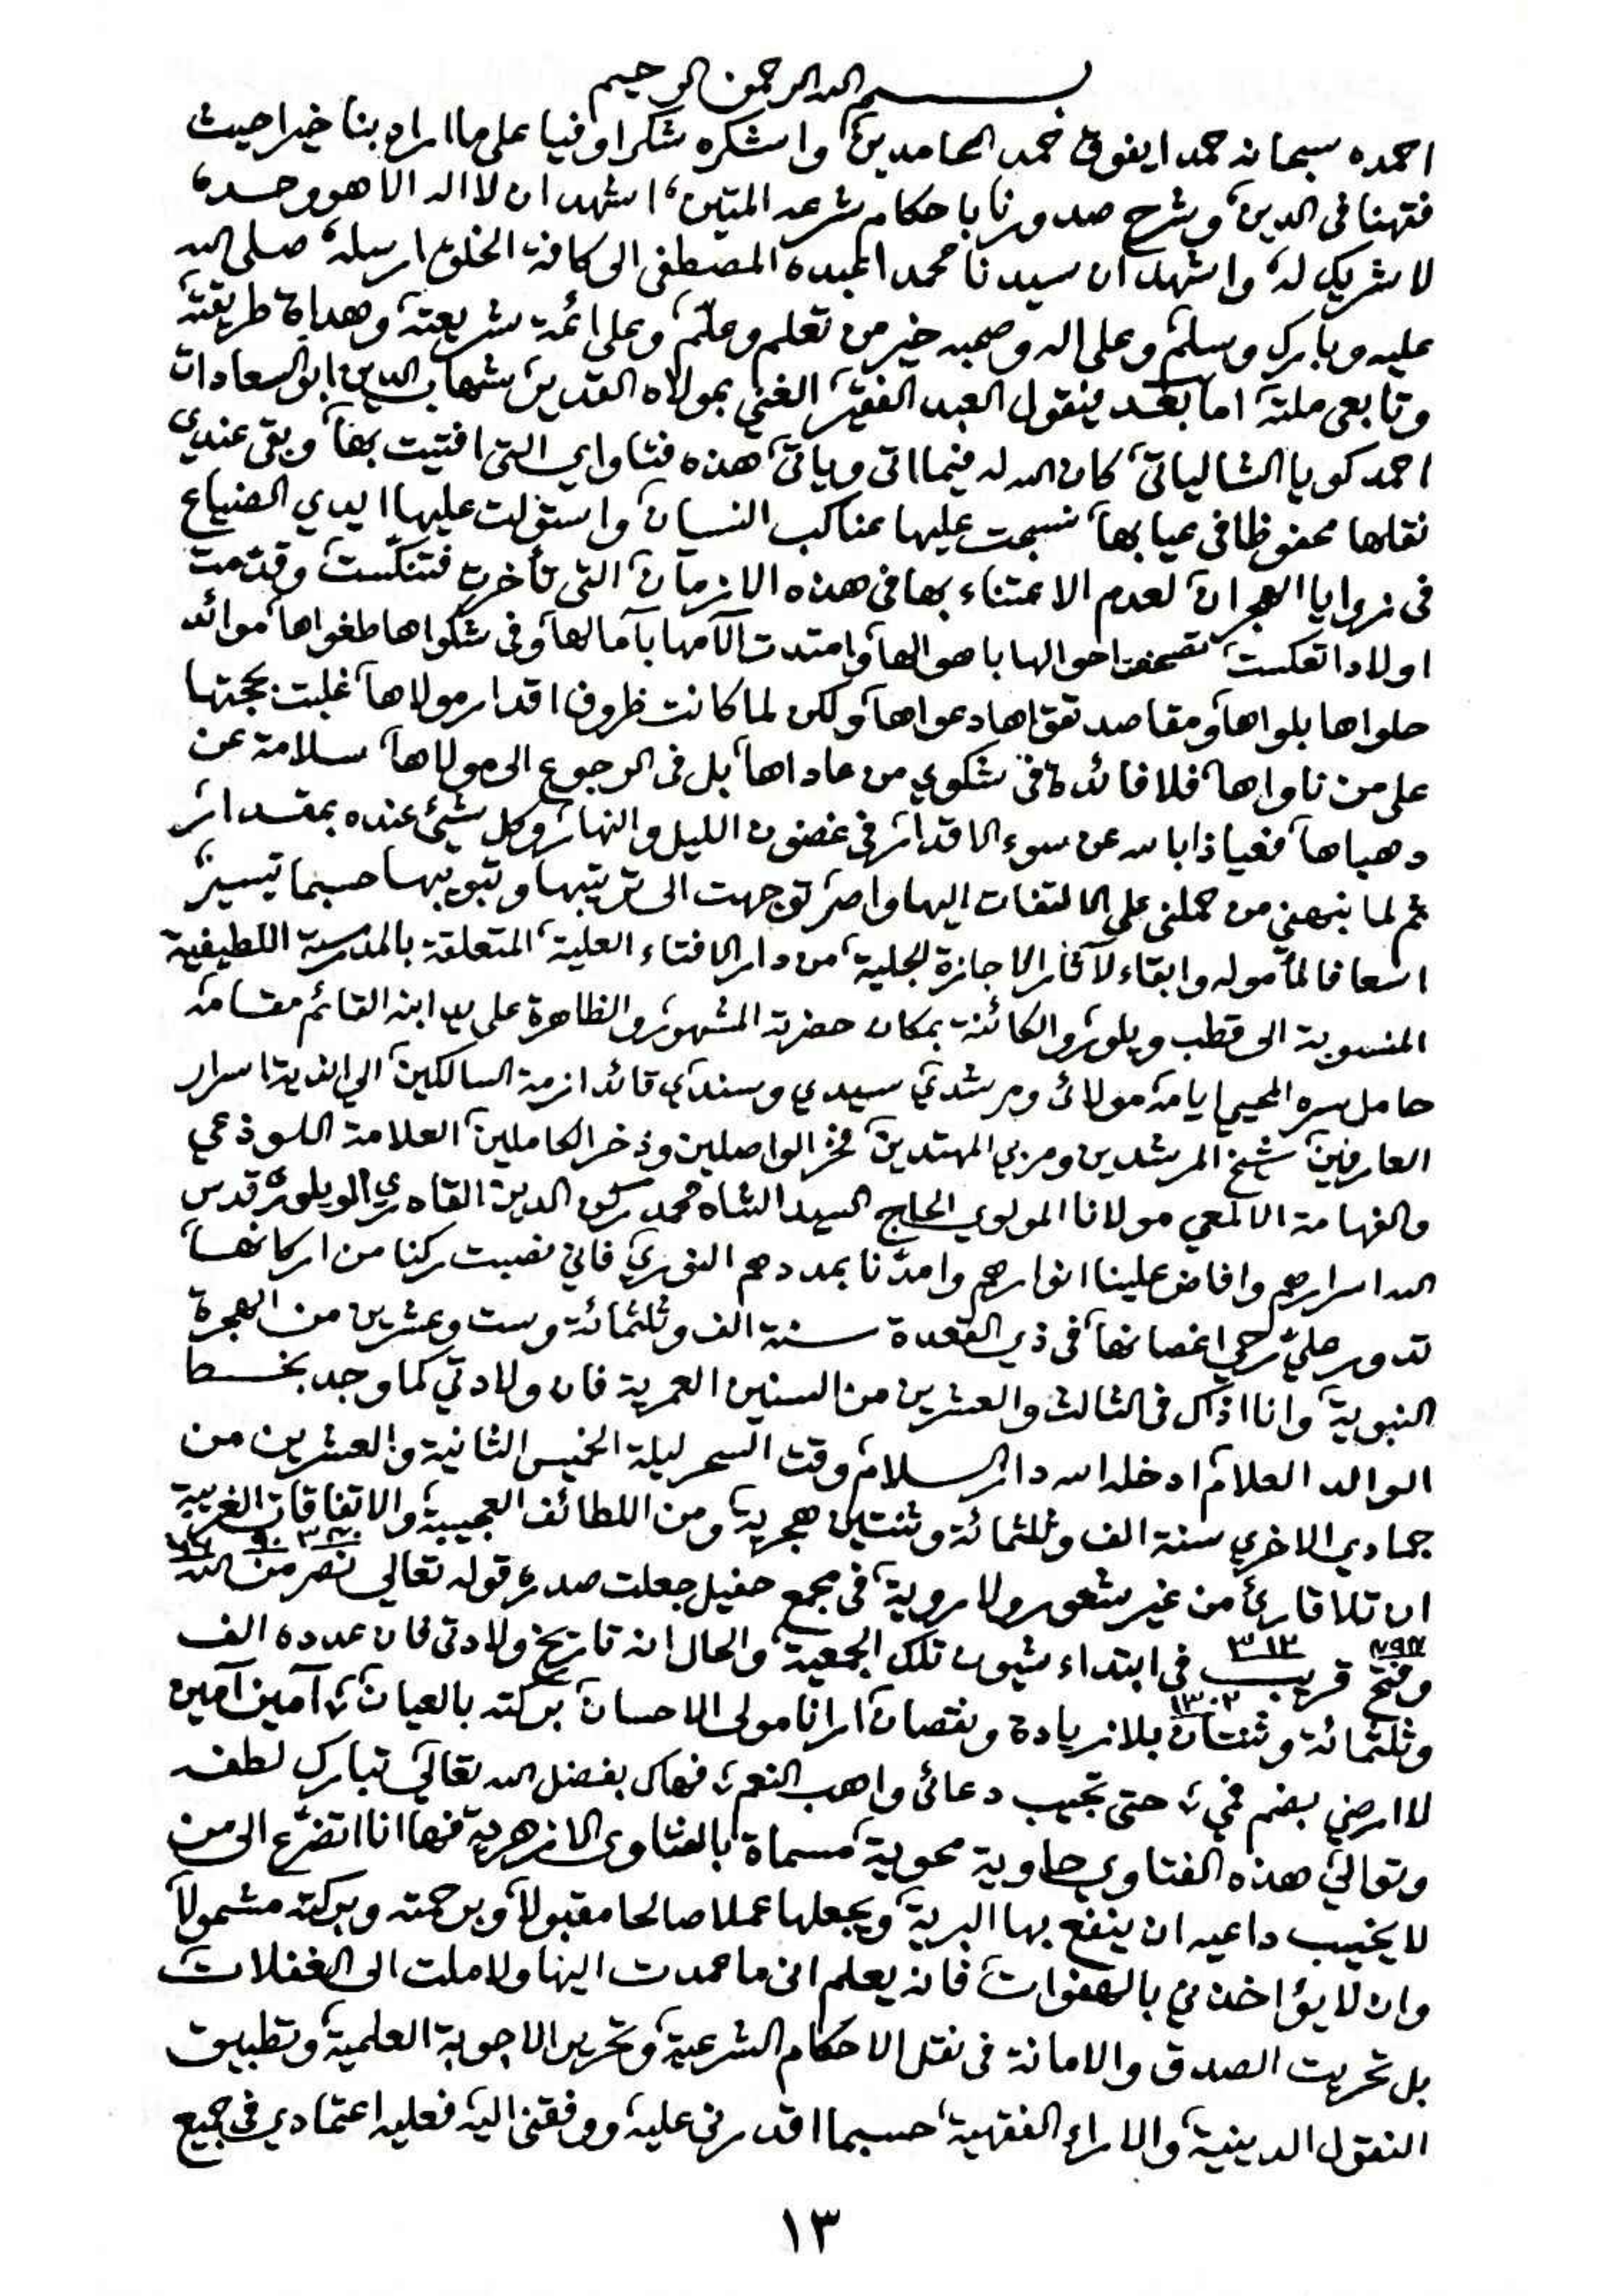 بسم الله الرحمن الرحيم
احمده سبحانه حمدا يفوق حمد الحامدين، واشكره شكرا وفيا على ما اراد بنا خيرا حيث
فقهنا فى الدين، وشرح صدورنا باحكام شرعه المتين، اشهد ان لا اله الا هو وحده،
لا شريك له، واشهد ان سيدنا محمدا عبده المصطفى الى كافة الخلق ارسله، صلى الله
عليه وبارك وسلم، وعلى اله وصحبه خير من تعلم وعلّم، وعلى ائمة شريعته، وهداة طريقته
وتابعى ملته، اما بعد فيقول العبد الفقير، الغني بمولاه القدير، شهاب الدين ابو السعادات
احمد كويا الشالياتي، كان الله له فيما اتى وياتى، هذه فتاواي التى افتيت بها، وبقى عندي
نقلها محفوظا فى عيابها، نسجت عليها عناكب النسيان، واستولت عليها ايدي الضياع
فى زوايا الهجران، لعدم الاعتناء بها فى هذه الازمان، التى تأخرت فتنكّست، وقدّمت
اولادا تعكست، احوالها باهوالها، وامتدت آلامها بآمالها، وفى شكواها طغواها، موائد
حلواها بلواها، ومقاصد تقواها دعواها، ولكن لما كانت ظروف اقدار مولاها، غلبت بحجتها
على من ناواها، فلا فائدة فى شكوي من عاداها، بل فى الرجوع الى مولاها، سلامة عن
دهياها، فعياذا بالله عن سوء الاقدار، فى غضون الليل والنهار، وكل شيئ عنده بمقدار،
ثم لما نبهني من حملنى على الالتفات اليها واصر، توجهت الى ترتيبها وتبويبها حسبما تيسر،
اسعافا لمأموله وابقاء لآثار الاجازة الجلية، من دار الافتاء العلية، المتعلقة بالمدرسة اللطيفية
المنسوبة الى قطب ويلور، والكائنة بمكان حضرة المشهور، والظاهرة على يد ابنه القائم مقامه
حامل سره المحيى ايامه، مولائى ومرشدي، سيدي وسندي، قائد ازمة السالكين، الى اندية اسرار
العارفين، شيخ المرشدين ومربي المهتدين، فخر الواصلين وذخر الكاملين، العلامة اللوذعي
والفهامة الالمعي مولانا المولوي الحاج السيد الشاه محمد ركن الدين القادري الويلوري قدس
الله اسرارهم وافاض علينا انوارهم وامدّنا بمددهم النوري، فاني نصبت ركنا من اركانها،
تدور عليّ رحي اغصانها، فى ذي القعدة سنة الف وثلثمائة وست وعشرين من الهجرة
النبوية، وانا اذاك فى الثالث والعشرين من السنين العمرية فان ولادتي كما وجد بخط
الوالد العلام، ادخله الله دار السلام، وقت السحر ليلة الخميس الثانية والعشرين من
جمادي الاخري سنة الف وثلثمائة وثنتين هجرية، ومن اللطائف العجيبة، والاتفاقات الغريبة
ان تلا قارئ من غير شعور ولا روية، فى مجمع حفيل جعلت صدره، قوله تعالى نصر من الله ٣٤٠ ٩٠ ٦٦
وفتح قريب ٤٩٤ ٣١٢ فى ابتداء شيون تلك الجمعية، والحال انه تاريخ ولادتى فان عدده الف
وثلثمائة وثنتان ١٣٠٢ بلا زيادة ونقصان، ارانا مولى الاحسان، بركته بالعيان، آمين آمين
لا ارضي بضم فمي، حتى تجيب دعائى واهب النعم، فهاك بفضل الله تعالى تبارك لطفه
وتوالى، هذه الفتاوي حاوية محوية، مسماة بالفتاوى الازهرية، فها انا اتضرّع الى من
لا يخيب داعيه ان ينفع بها البرية، ويجعلها عملا صالحا مقبولا، وبرحمته وبركته مشمولا،
وان لا يؤاخذني بالهفوات، فانه يعلم انى ما عمدت اليها ولا ملت الى الغفلات،
بل تحريت الصدق والامانة فى نقل الاحكام الشرعية، وتحرير الاجوبة العلمية، وتطبيق
النقول الدينية، والاراء الفقهية، حسبما اقدرنى عليه، ووفقنى اليه، فعليه اعتمادي فى جميع
١٣